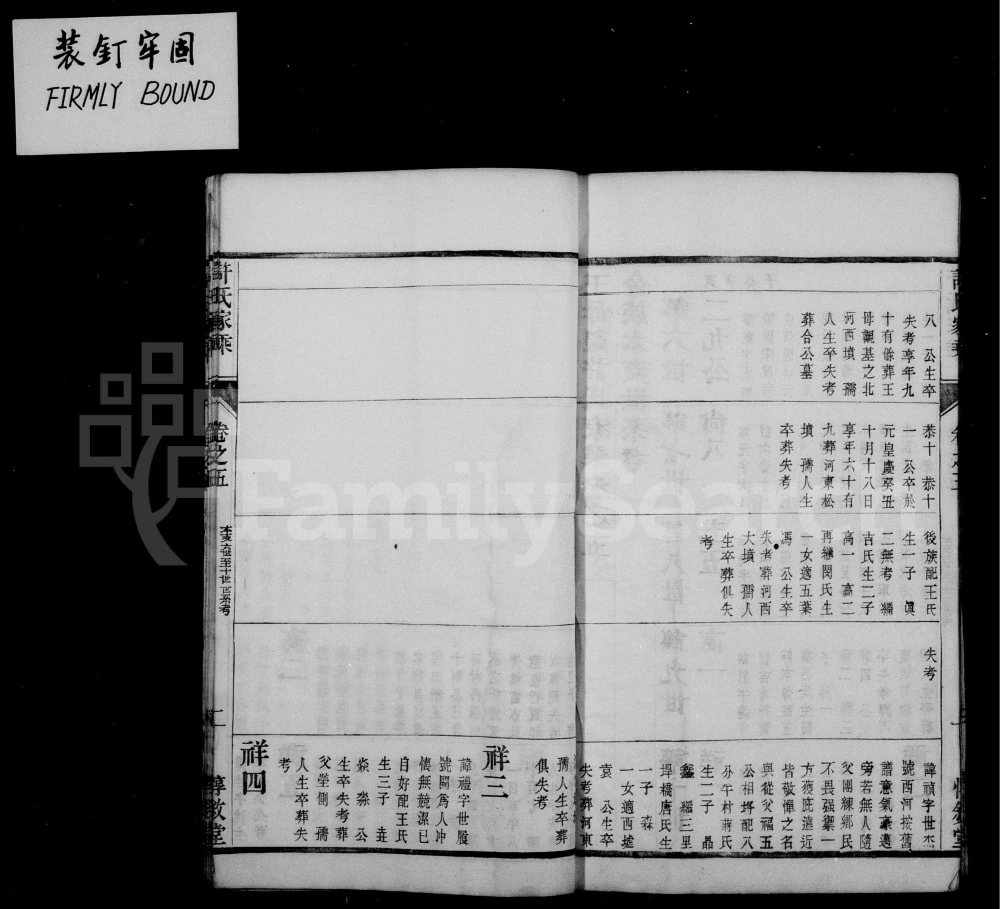 装釘牢固
FIRMLY BOUND
八一 公生卒
失考享年九
十有餘葬王
母觀基之北
河西墳 孺
人生卒失考
葬合公墓
恭十 恭十
一 公卒於
元皇慶癸丑
十月十八日
享年六十有
九葬河東松
墳 孺人生
卒葬失考
後族配王氏
生一子 眞
二無考 繼
吉氏生二子
高一 高二
再繼閔氏生
一女適五葉
馮 公生卒
失考葬河西
大墳 孺人
生卒葬俱失
考
失考
諱禎字世杰
號西河按舊
譜意氣豪邁
旁若無人隨
父團練鄉民
不畏强禦一
方獲庇遠近
皆敬憚之名
與從父福五
公相埒配八
分平村蔣氏
生二子 晶
鑫 繼三里
垾橋唐氏生
一子 森
一女適西墟
袁 公生卒
失考葬河東
孺人生卒葬
俱失考
祥三
諱禮字世展
號聞爲人冲
恬無競潔已
自好配王氏
生三子 垚
焱 淼 公
生卒失考葬
父塋側 孺
人生卒葬失
考
祥四
許氏家乘
卷之五
本支六世至十世世系考
惇敘堂
FamilySearch